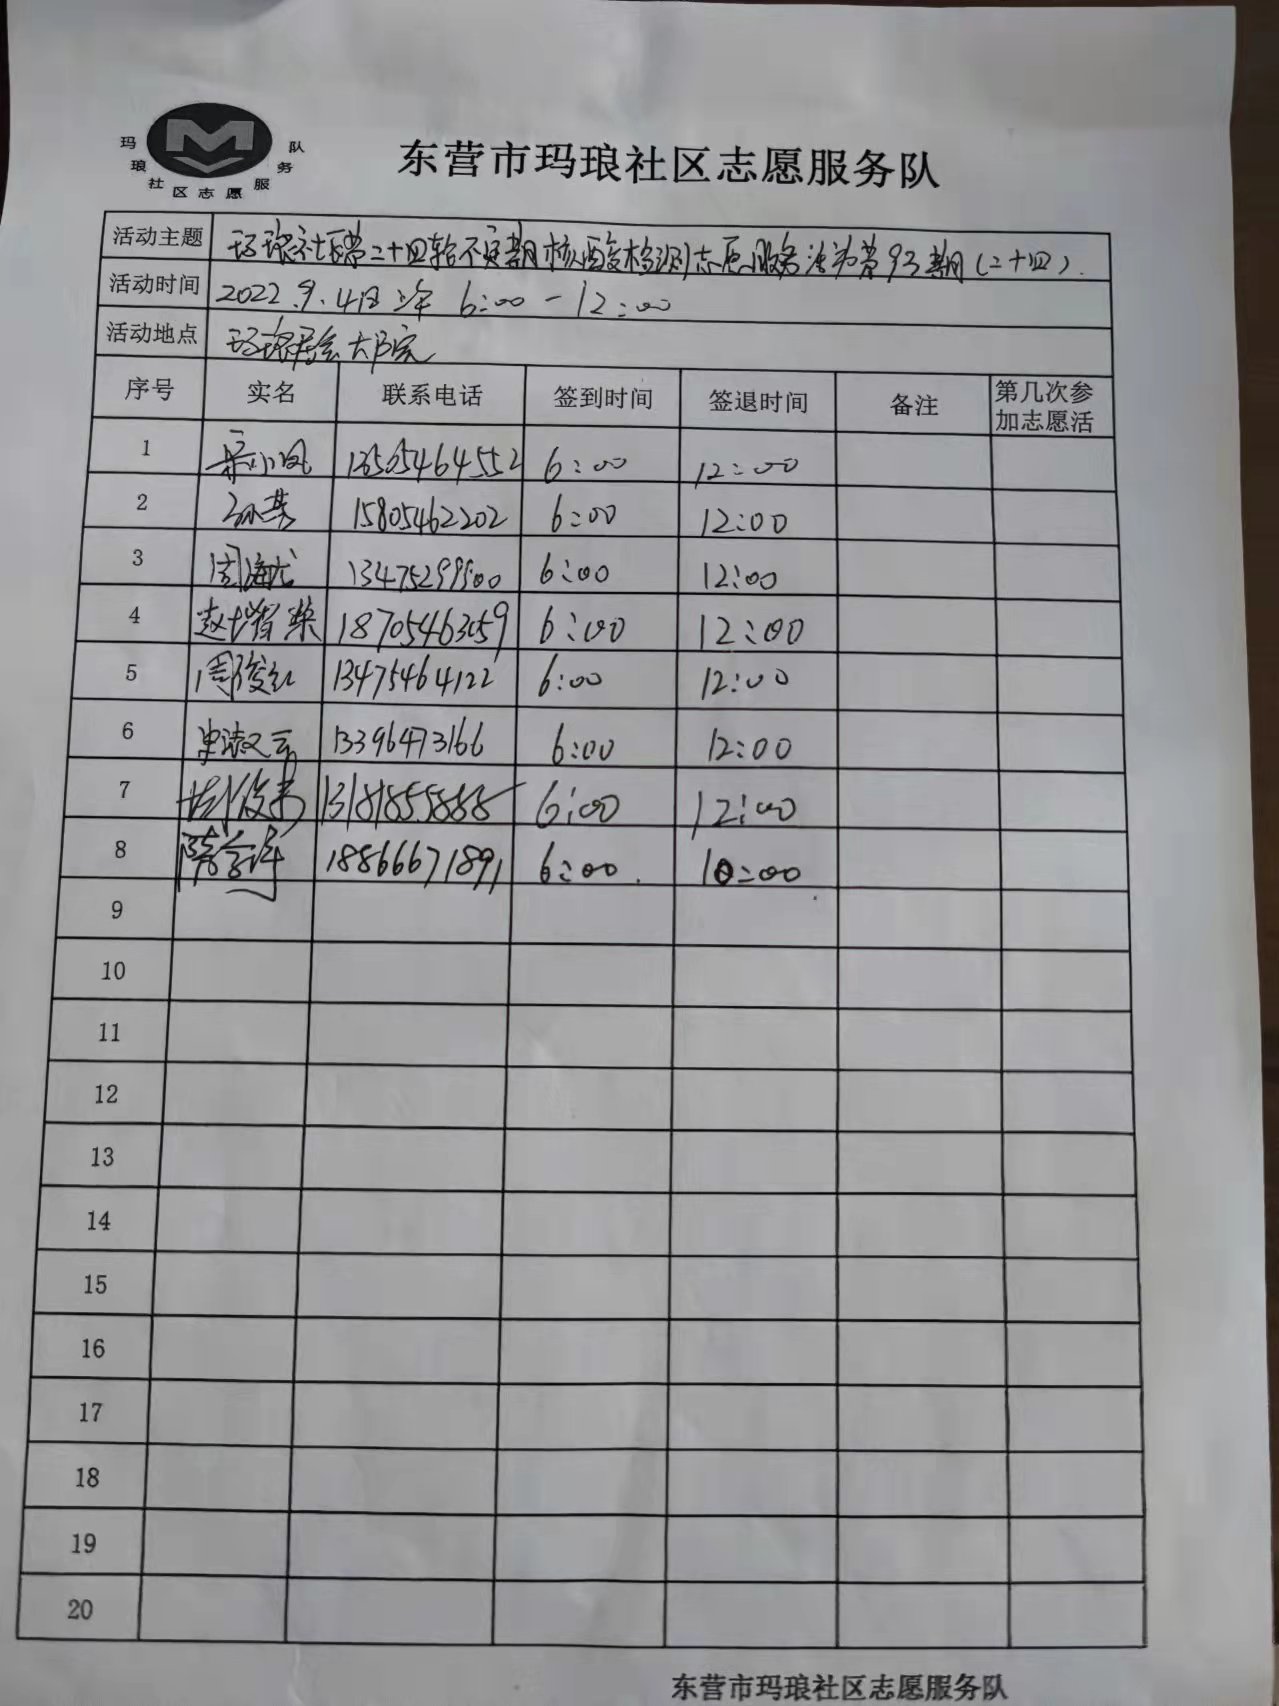 玛琅社区志愿服务队
东营市玛琅社区志愿服务队
活动主题 玛琅社区第二十四轮不定期核酸检测志愿服务活动第93期(二十四).
活动时间 2022.9.4日上午 6:00-12:00
活动地点 玛琅居会大院
序号 实名 联系电话 签到时间 签退时间 备注 第几次参
加志愿活
1 宋小凤 13505464552 6:00 12:00
2 孙燕 15805462202 6:00 12:00
3 周海龙 13475299900 6:00 12:00
4 赵增荣 18705463059 6:00 12:00
5 周俊红 13475464122 6:00 12:00
6 13396473166 6:00 12:00
7 13181855888 6:00 12:00
8 18866671891 6:00 10:00
9
10
11
12
13
14
15
16
17
18
19
20
东营市玛琅社区志愿服务队